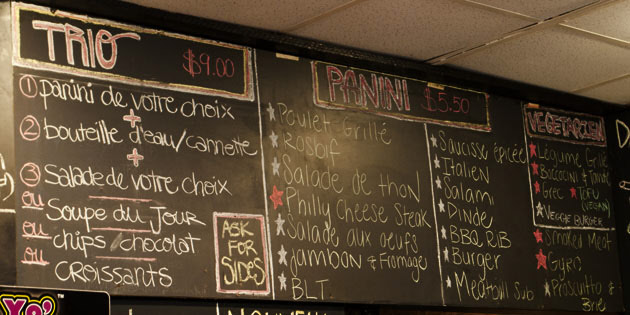 TRIO $9.00
① panini de votre choix
+
② bouteille d'eau/cannette
+
③ Salade de votre choix
ou Soupe du Jour
ou chips/chocolat
ou croissants
ASK
FOR
SIDES
PANINI $5.50
Poulet-Grillé
Rosbif
Salade de thon
Philly Cheese Steak
Salade aux oeufs
Jambon & Fromage
BLT
Saucisse épicée
Italien
Salami
Dinde
BBQ RiB
Burger
Meatball Sub
VEGETARIEN
Légume Grillé
Boccocini & Tomate
Grec
Tofu
VEGGIE BURGER
Smoked Meat
Gyros
Prosciutto &
Brie
YO'